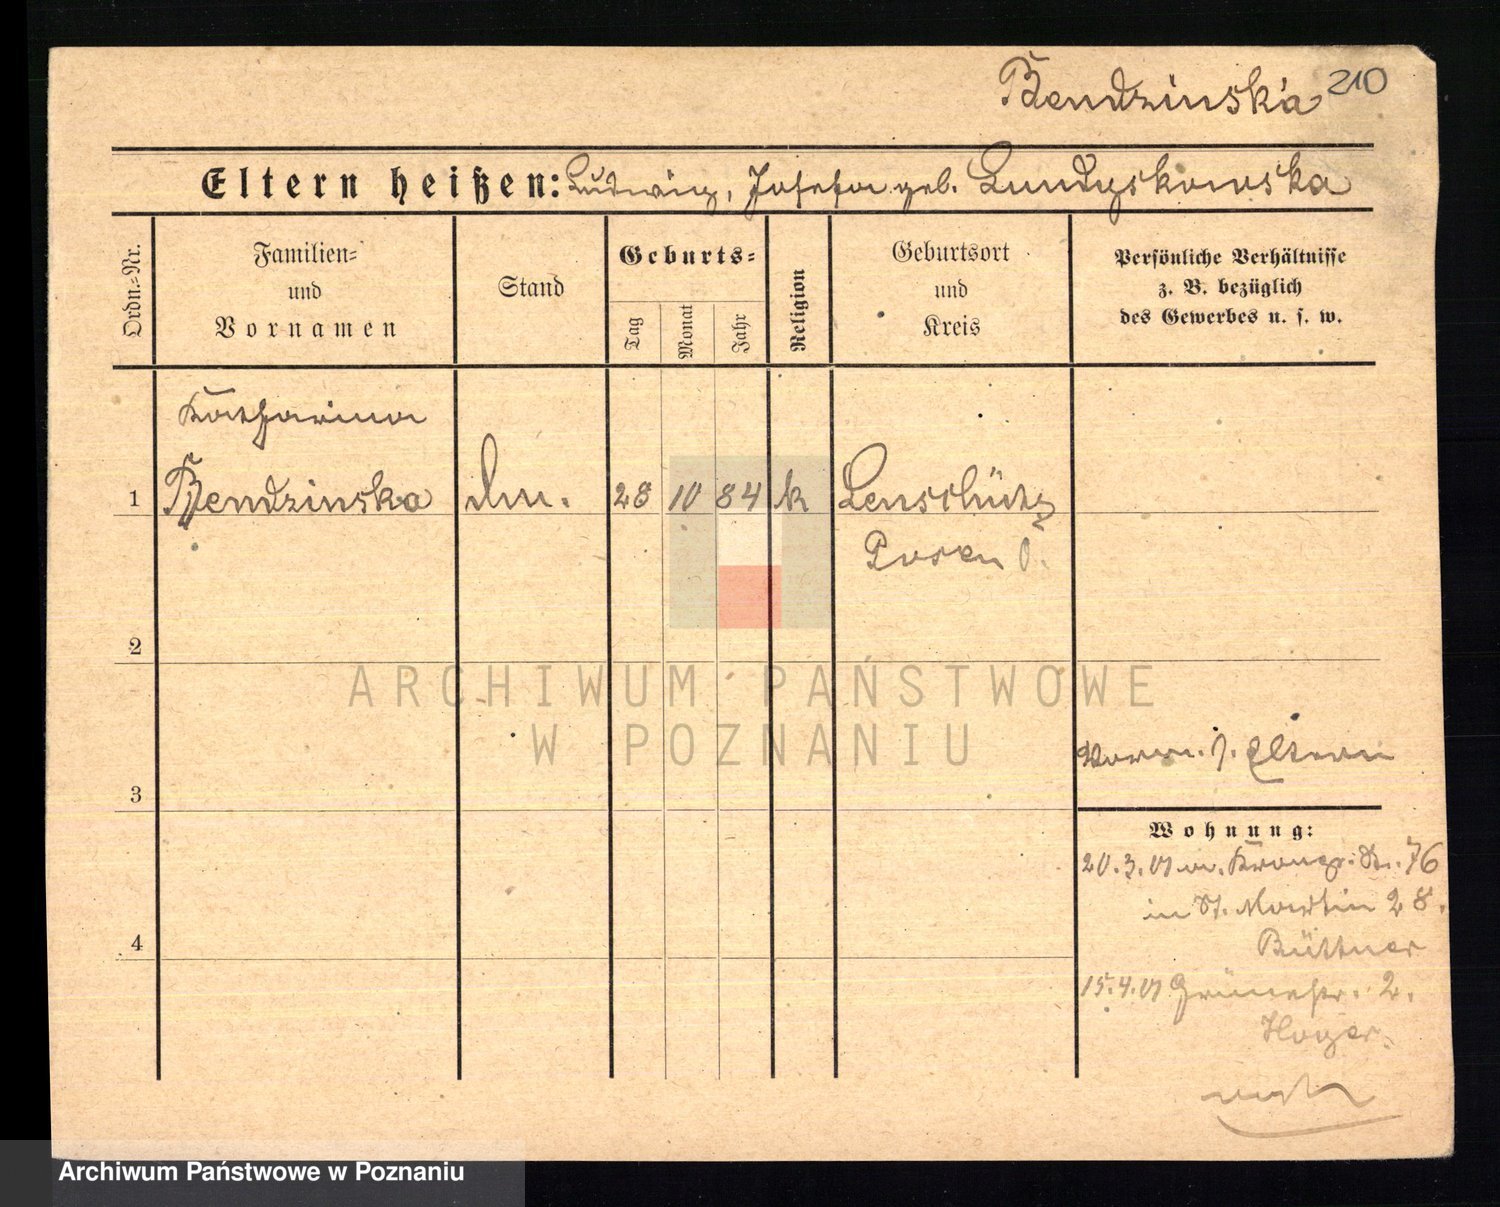 Bendzinska 210
Eltern heißen: Ludwig, Josefa geb. Lundyskowska
Ordn.-Nr.
Familien-
und
Vornamen
Stand
Geburts-
Tag
Monat
Jahr
Religion
Geburtsort
und
Kreis
Persönliche Verhältnisse
z. B. bezüglich
des Gewerbes u. s. w.
Katharina
1 Bendzinska 28 10 84 k Lenschütz
Posen O.
2
ARCHIWUM PAŃSTWOWE
W POZNANIU
Eltern
3
Wohnung:
20.3.01 76
in St. Martin 28.
Büttner
4
15.4.01 Grünestr. 2.
Hoyer.
Archiwum Państwowe w Poznaniu